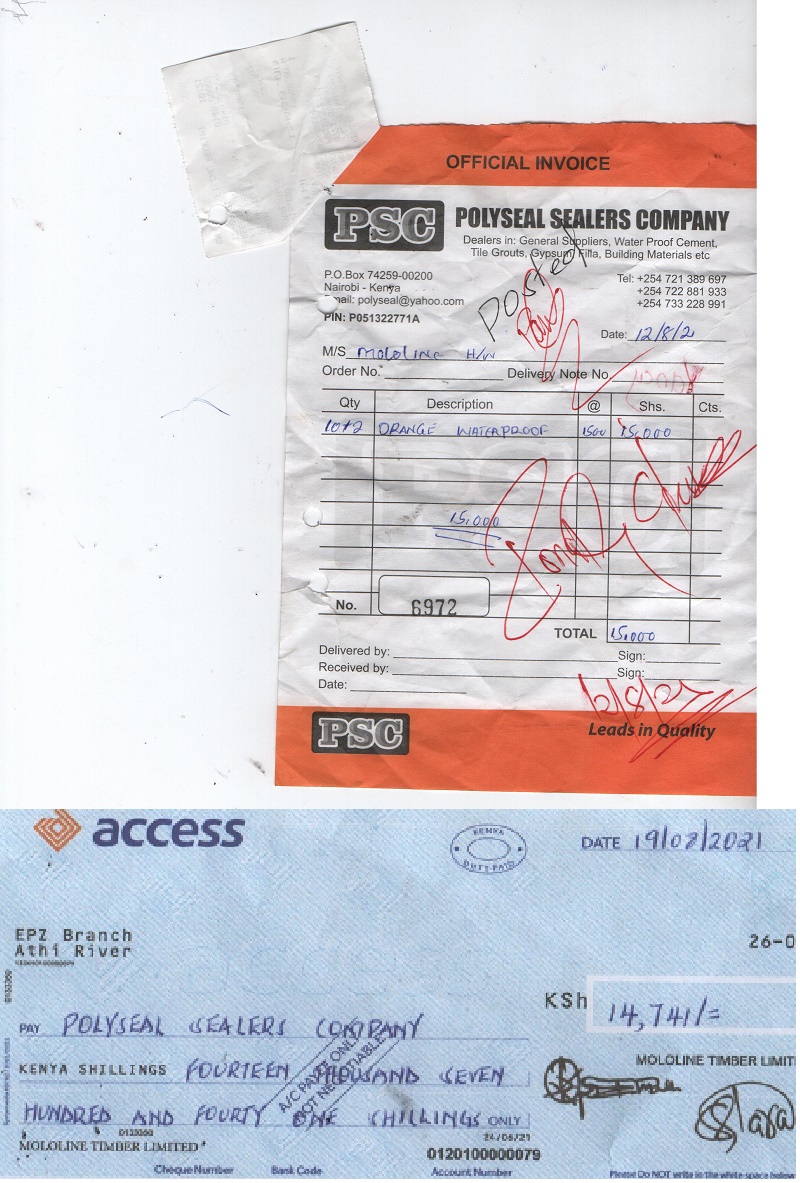 OFFICIAL INVOICE
PSC
POLYSEAL SEALERS COMPANY
Dealers in: General Suppliers, Water Proof Cement,
Tile Grouts, Gypsum, Filla, Building Materials etc
P.O.Box 74259-00200
Nairobi - Kenya
Email: polyseal@yahoo.com
PIN: P051322771A
Tel: +254 721 389 697
+254 722 881 933
+254 733 228 991
Posted
Date: 12/8/21
M/S Mololine H/W
Order No. Delivery Note No.
Qty Description @ Shs. Cts.
10+2 ORANGE WATERPROOF 1500 15,000
15,000
No. 6972
TOTAL 15,000
Delivered by: Sign:
Received by: Sign:
Date:
12/8/21
PSC
Leads in Quality
access
KENYA
DUTY PAID
DATE 19/08/2021
EPZ Branch
Athi River
26-0
KSh 14,741/=
PAY POLYSEAL SEALERS COMPANY
A/C PAYEE ONLY
NOT NEGOTIABLE
KENYA SHILLINGS FOURTEEN THOUSAND SEVEN
MOLOLINE TIMBER LIMIT
HUNDRED AND FOURTY ONE SHILLINGS ONLY
24/06/21
MOLOLINE TIMBER LIMITED
0120100000079
Cheque Number Bank Code Account Number
Please Do NOT write in the white space below